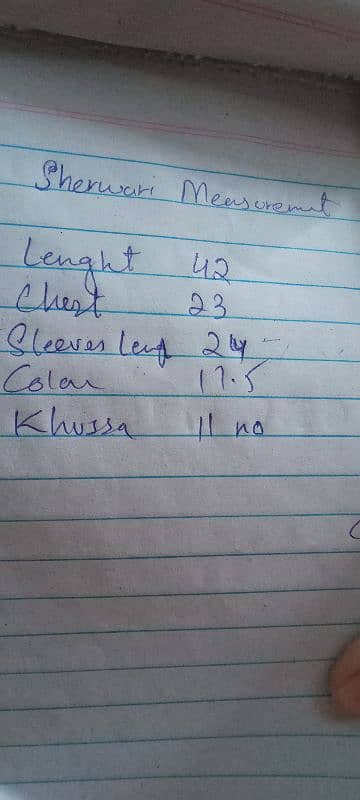 Sherwari Measuremt
Lenght 42
Chest 23
Sleeves Leng 24
Colar 17.5
Khussa 11 no